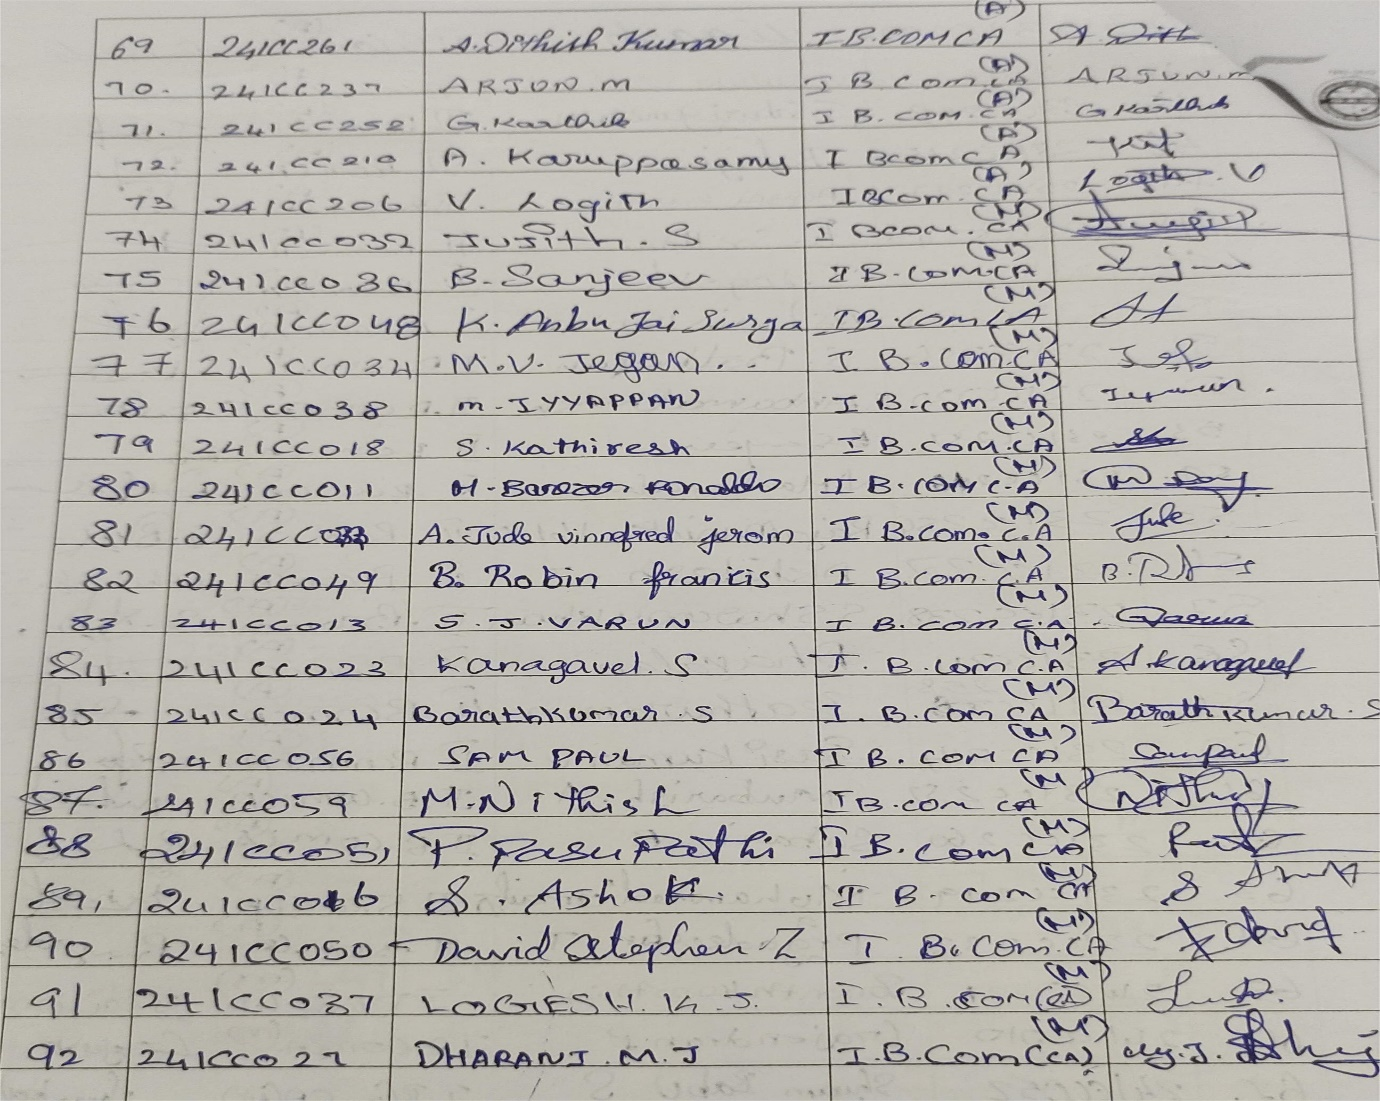 (A)
69 241CC261 A.Dithish Kumar I B.COM CA
(A)
70. 241CC237 ARJUN.M I B.Com.CA ARJUN.M
(A)
71. 241CC252 G.Karthik I B.COM.CA G.Karthik
(A)
72. 241CC210 A. Karuppasamy I BcomCA
(A)
73 241CC206 V. Logith IBCom.CA Logith.V
(M)
74 241CC032 Jujith.S I BCom.CA
(M)
75 241CC036 B.Sanjeev I B.COM.CA
(M)
76 241CC048 K.Anbu Jai Surya IB.ComCA
(M)
77 241CC034 M.V. Jegan.. I B.Com.CA
(M)
78 241CC038 m.IYYAPPAN I B.com.CA
(M)
79 241CC018 S.Kathiresh I B.COM.CA
(M)
80 241CC011 Ronaldo I B.COM C.A
(M)
81 A.Jude vinnefred jerom I B.com.C.A Jude
(M)
82 241CC049 B. Robin francis I B.com.C.A
(M)
83 241CC013 S.J.VARUN I B.com C.A. Varun
(M)
84. 241CC023 Kanagavel.S I.B.Com C.A Kanagavel
(M)
85 241CC024 Barathkumar.S I.B.Com CA Barathkumar.S
(M)
86 241CC056 SAM PAUL I B.COM CA Sampaul
(M
87. 241CC059 M.Nithish IB.com CA
(M)
88 241CC051 P.Pasupathi I B.Com CA
(M)
89, S.Ashok. I B.com CA
(M)
90 241CC050 David Stephen Z I B.Com.CA David
(M)
91 241CC037 LOGIESH.K.S. I.B.COM(CA)
(M)
92 241CC027 DHARANI.M.J I.B.Com(CA)